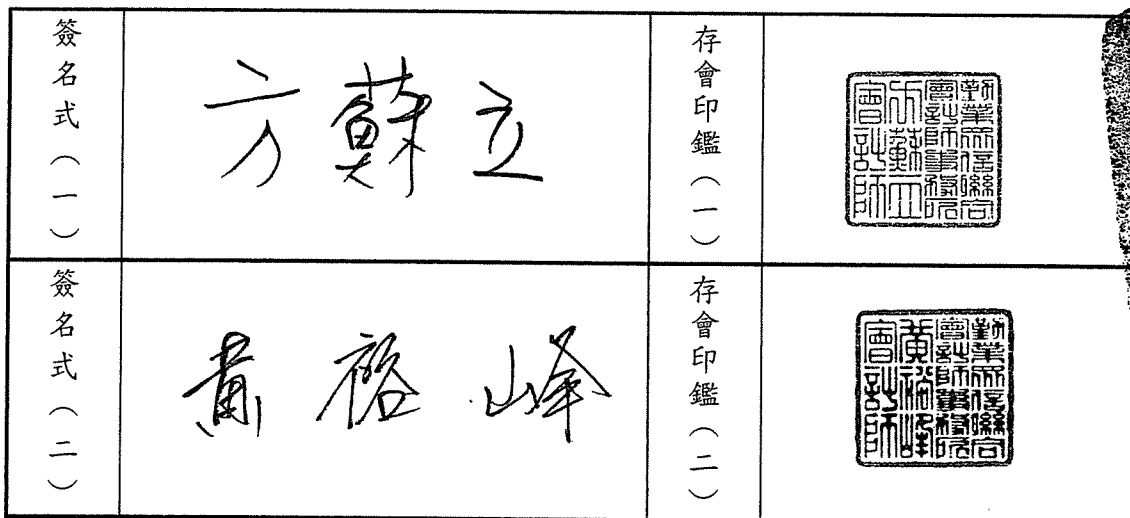 簽名式（一）
方蘇立
存會印鑑（一）
勤業眾信聯合
會計師事務所
方蘇立
會計師
簽名式（二）
黃裕峰
存會印鑑（二）
勤業眾信聯合
會計師事務所
黃裕峰
會計師